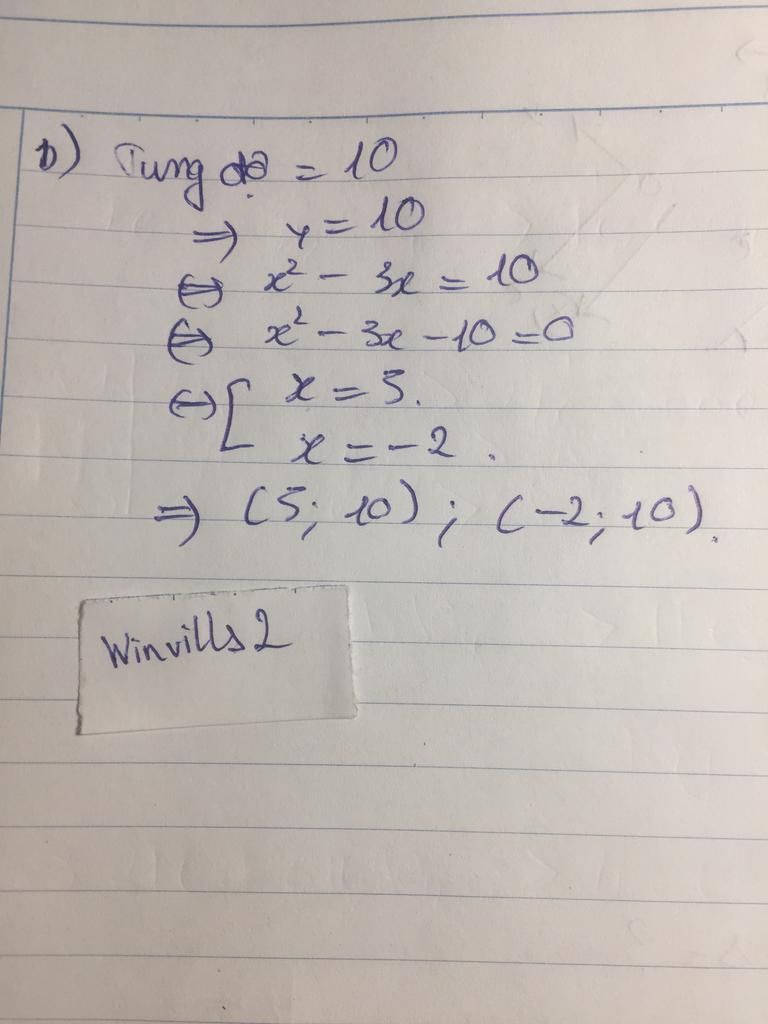 b) Tung độ = 10
⇒ y = 10
⇔ x² - 3x = 10
⇔ x² - 3x - 10 = 0
⇔ [ x = 5.
x = -2.
⇒ (5; 10); (-2; 10).
Winvills2